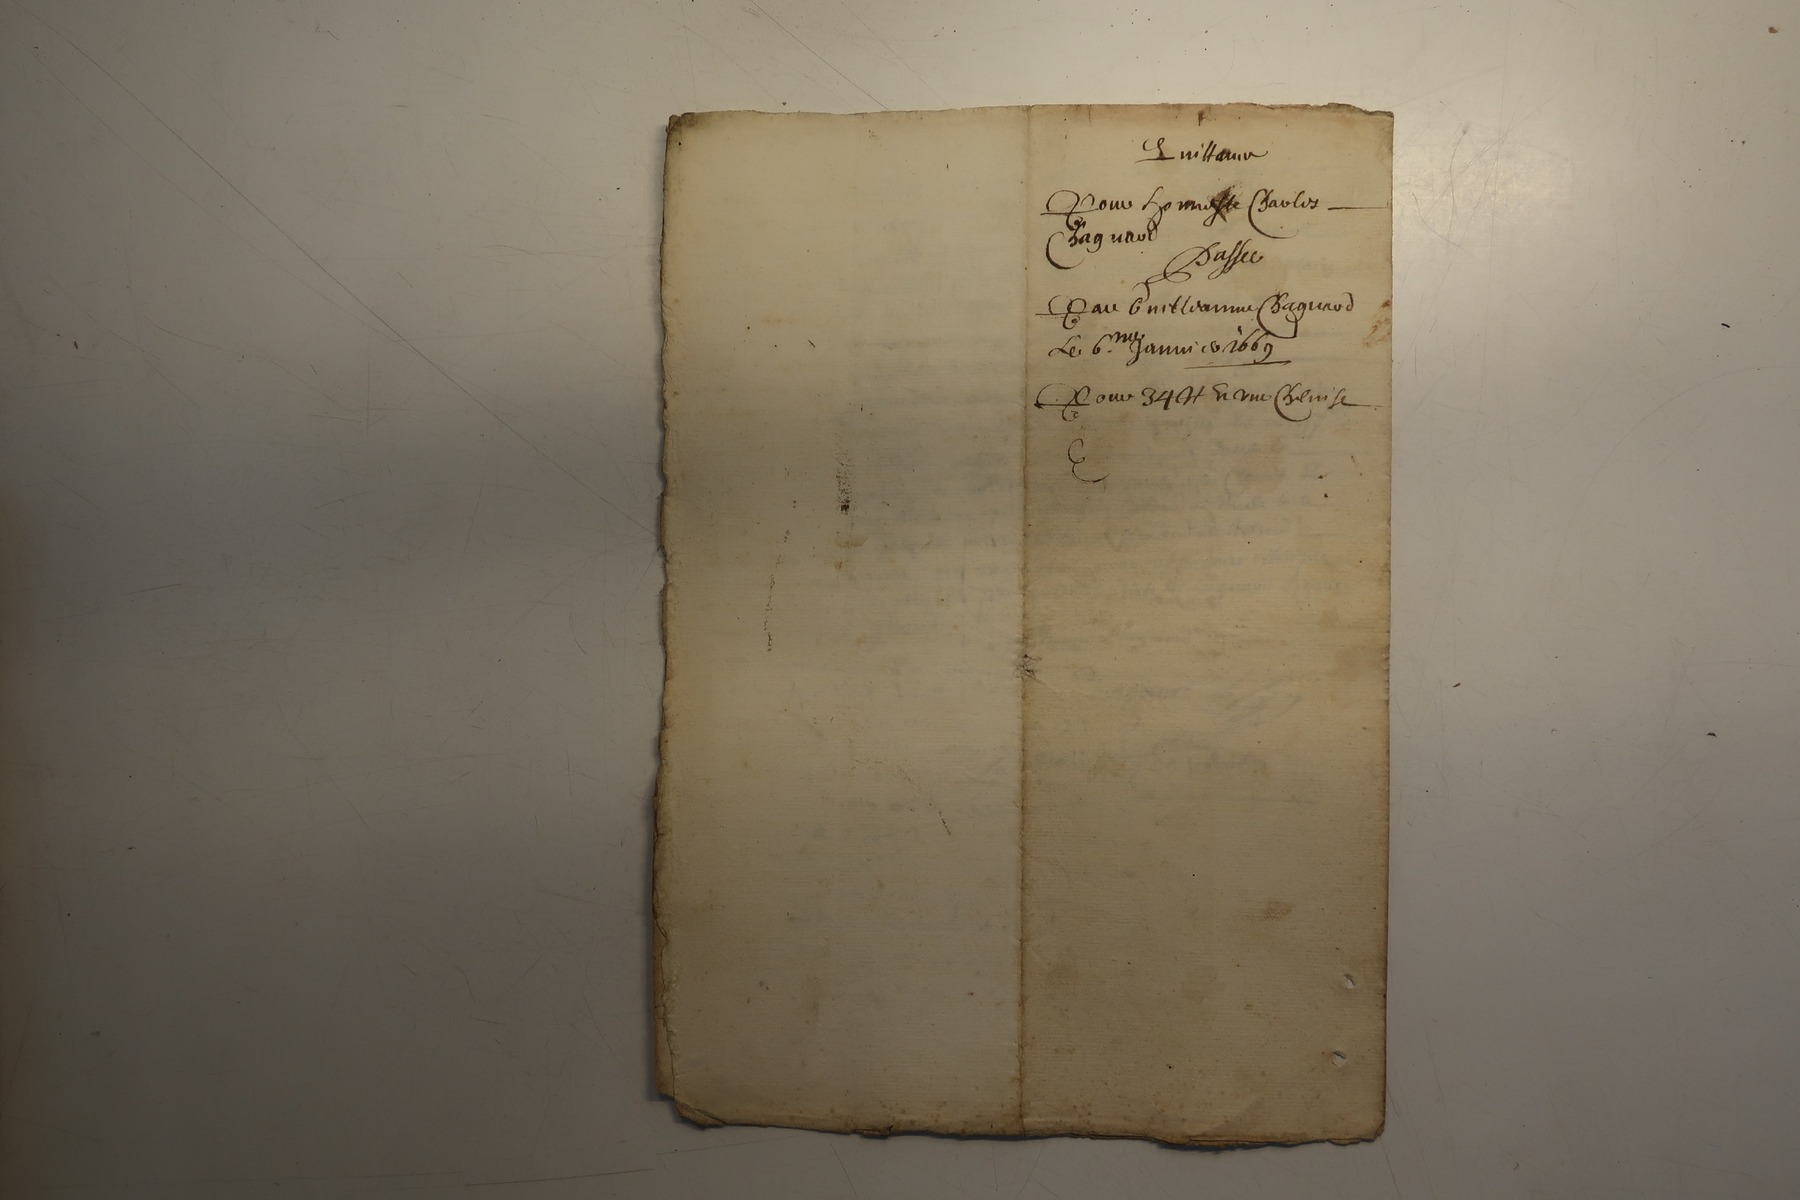 Quittance
Pour honneste Charles
Chagnard
Passee
Par Guilleaume Chagnard
Le 6.me Janvier 1669
Pour 34 tt